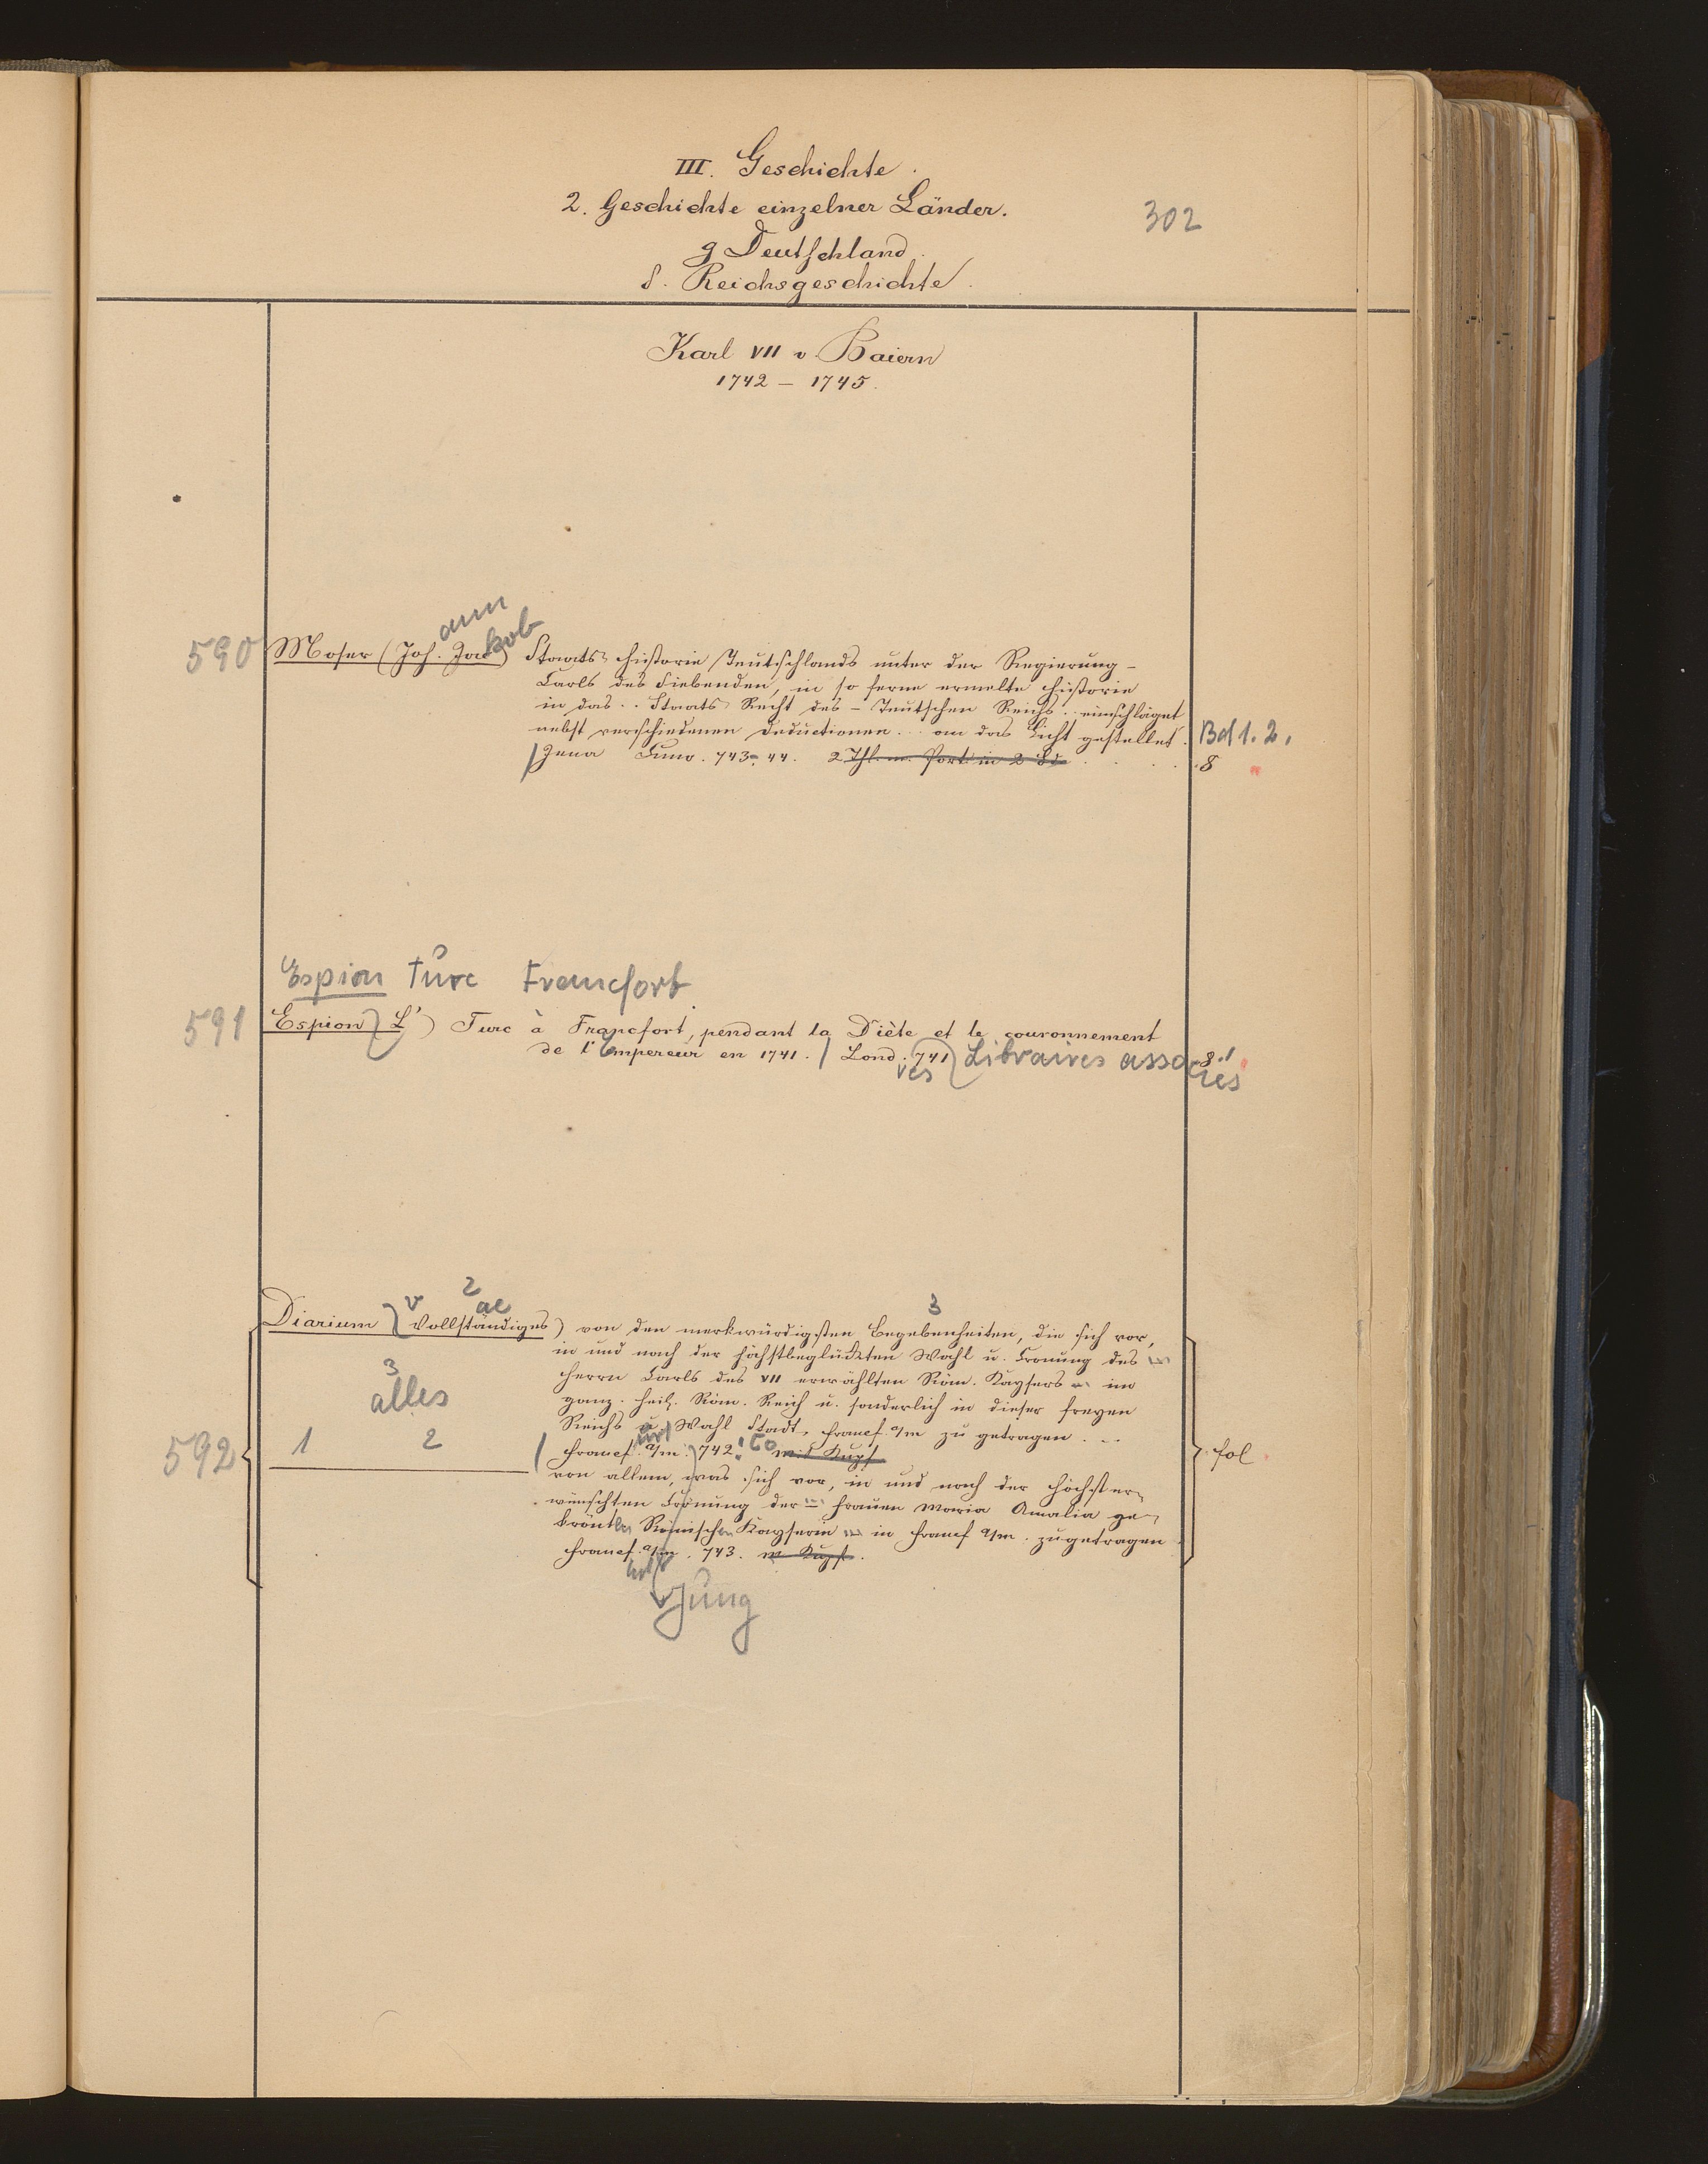 III. Geschichte.
2. Geschichte einzelner Länder.
302
g Deutschland.
δ. Reichsgeschichte.
Karl VII v. Baiern
1742 – 1745.
ann
kob
590 Moser (Joh. Jac) Staats-Historie Teutschlands unter der Regierung –
Carls des Siebenden, in so ferne ermelte Historie
in das .. Staats Recht des – Teutschen Reichs .. einschläget
nebst verschiedenen Deductionen ... an das Licht gestellet. Bd 1. 2.
Jena Cuno. 743-44. 2 Thl. m. Port. in 2 Bd. 8
Espion turc Francfort
591 Espion (L') Turc à Francfort, pendant la Diète et le couronnement
de l'Empereur en 1741. Lond. 741 Libraires associés 8.'
res
v 2 ae 3
Diarium (Vollständiges) von den merkwürdigsten Begebenheiten, die sich vor,
in und nach der höchstbeglückten Wahl u. Cronung des
Herrn Carls des VII erwählten Röm. Kaysers im
3
alles
ganz. heil. Röm. Reich u. sonderlich in dieser freyen
Reichs u. Wahl Stadt, Francf. a/m zu getragen. ..
592 1 2 Francf. a/m. 742. mit Kupf fol.
von allem, was sich vor, in und nach der höchst er-
wünschten Crönung der Frauen Maria Amalia ge-
krönten Römischen Kayserin in Francf a/m. zugetragen
Francf. a/m. 743. m Kupf.
Jung